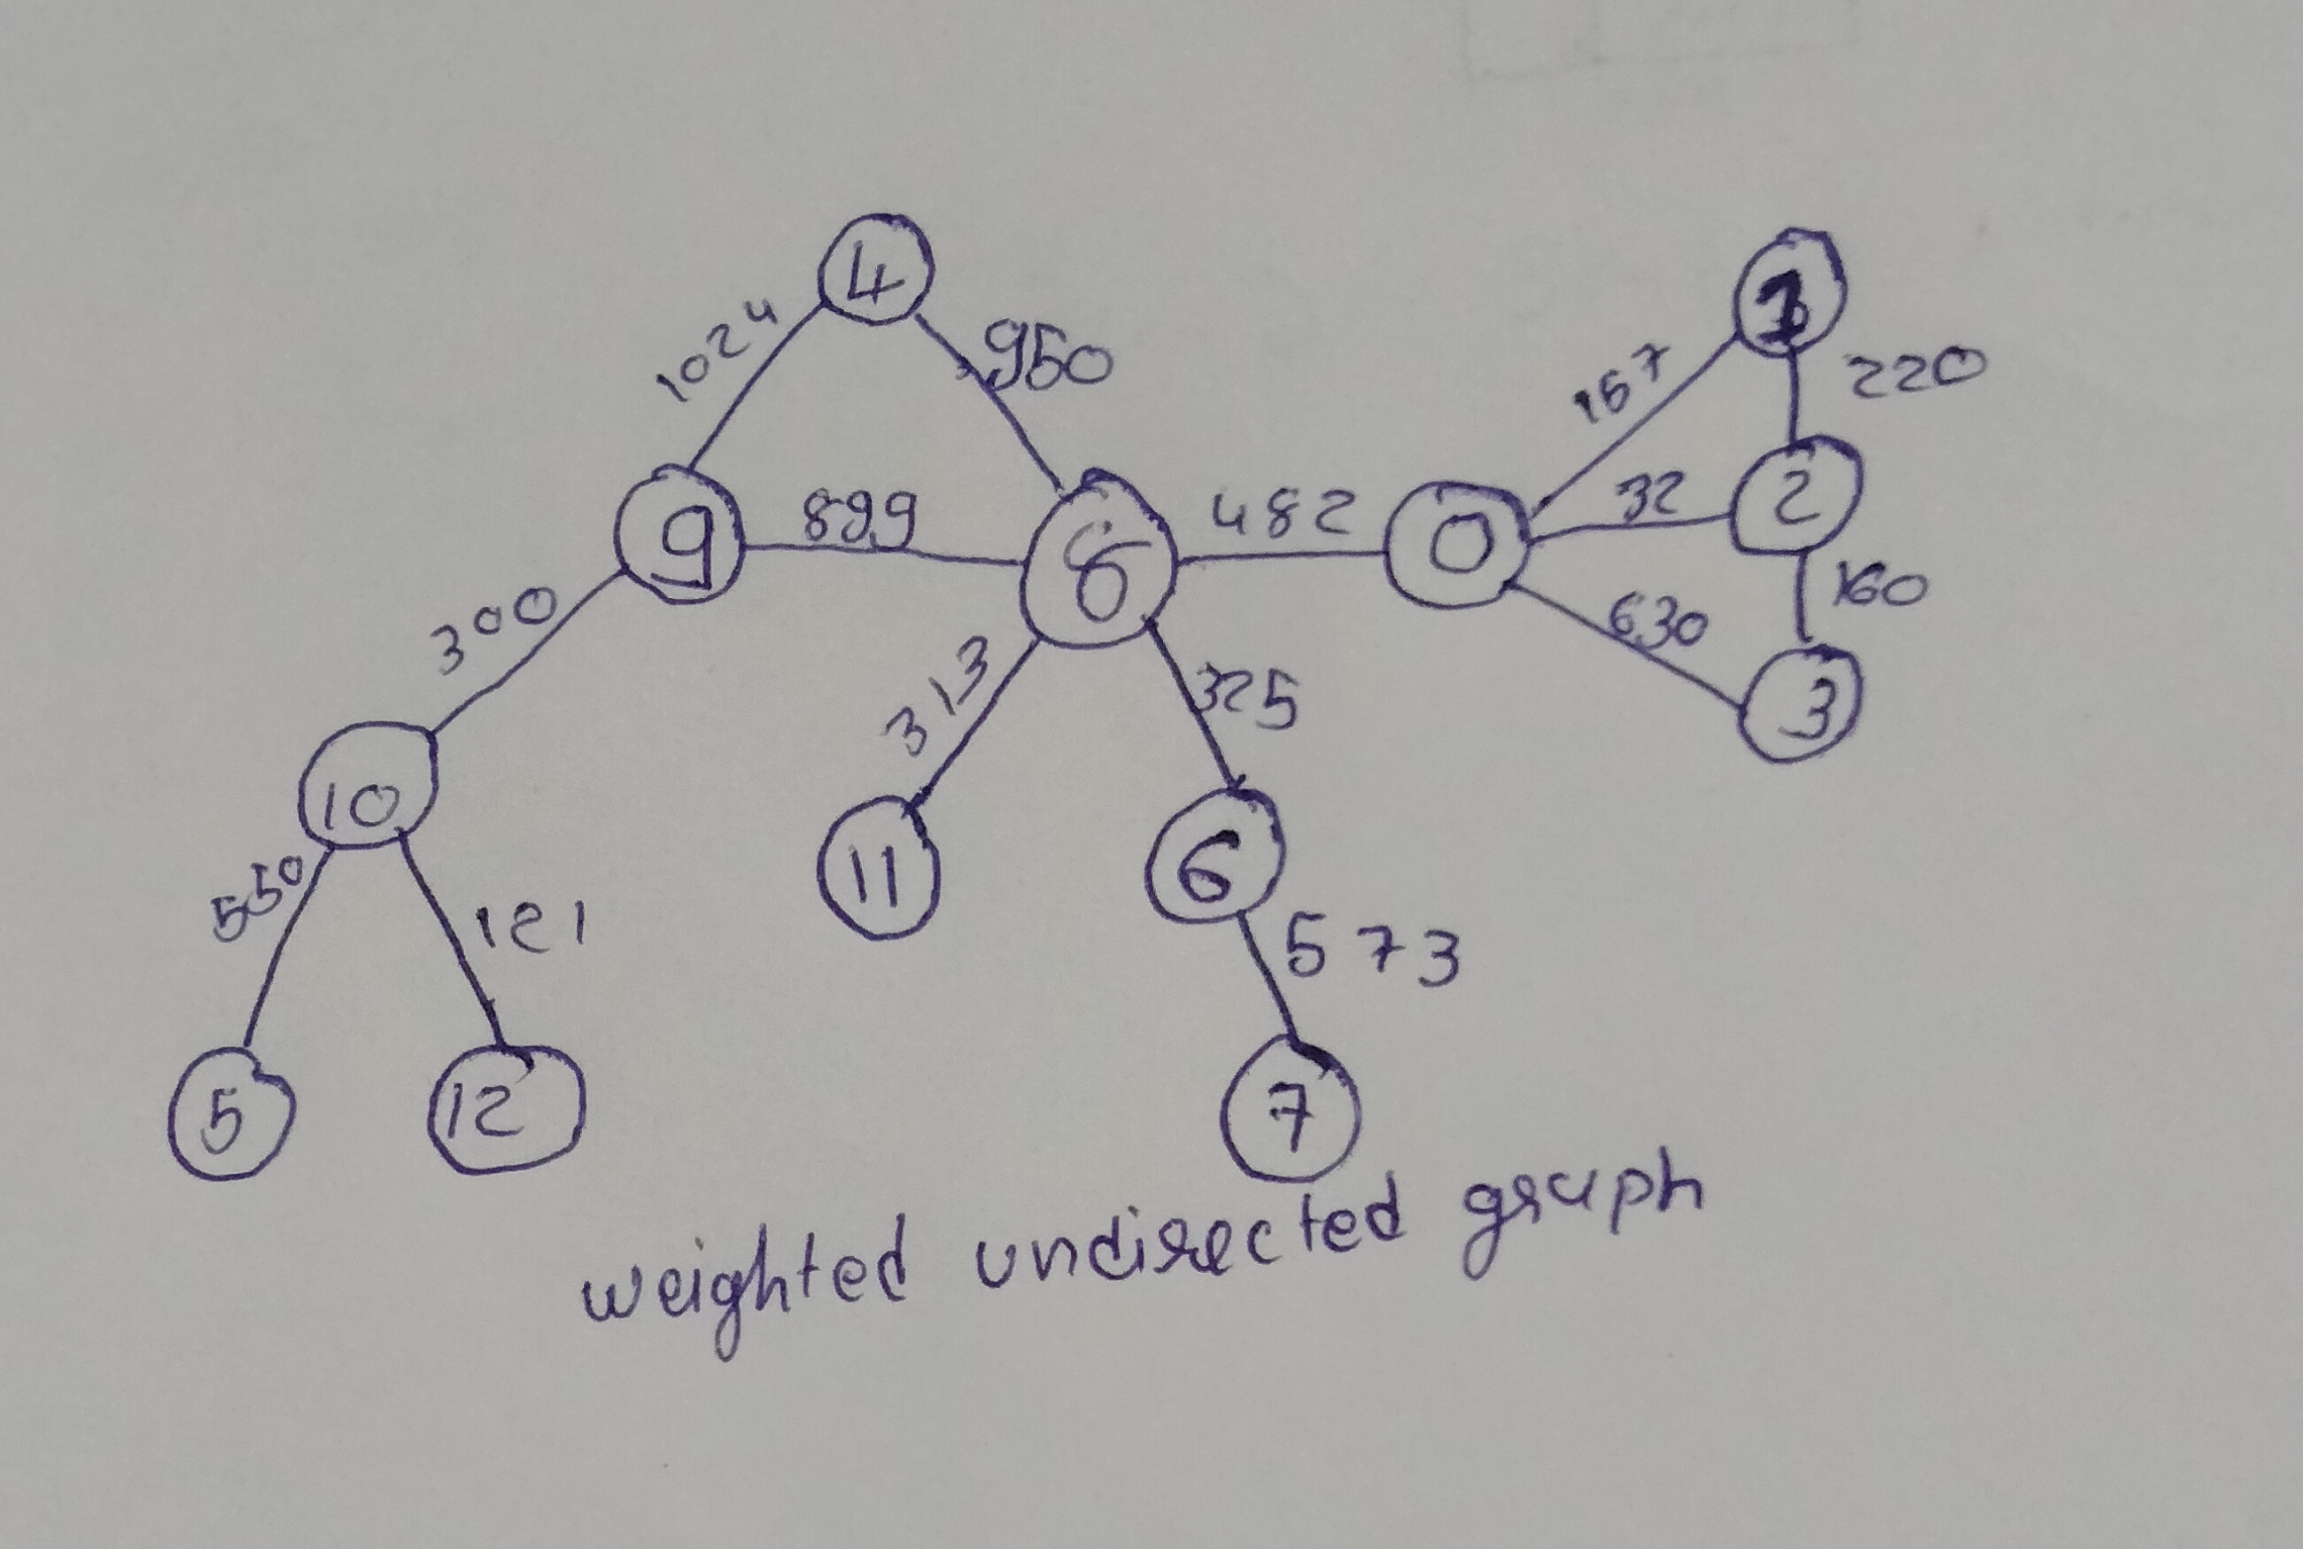 4
1
1024
950
167
220
9
899
8
482
0
32
2
300
313
325
630
160
3
10
11
6
550
121
573
5
12
7
weighted undirected graph